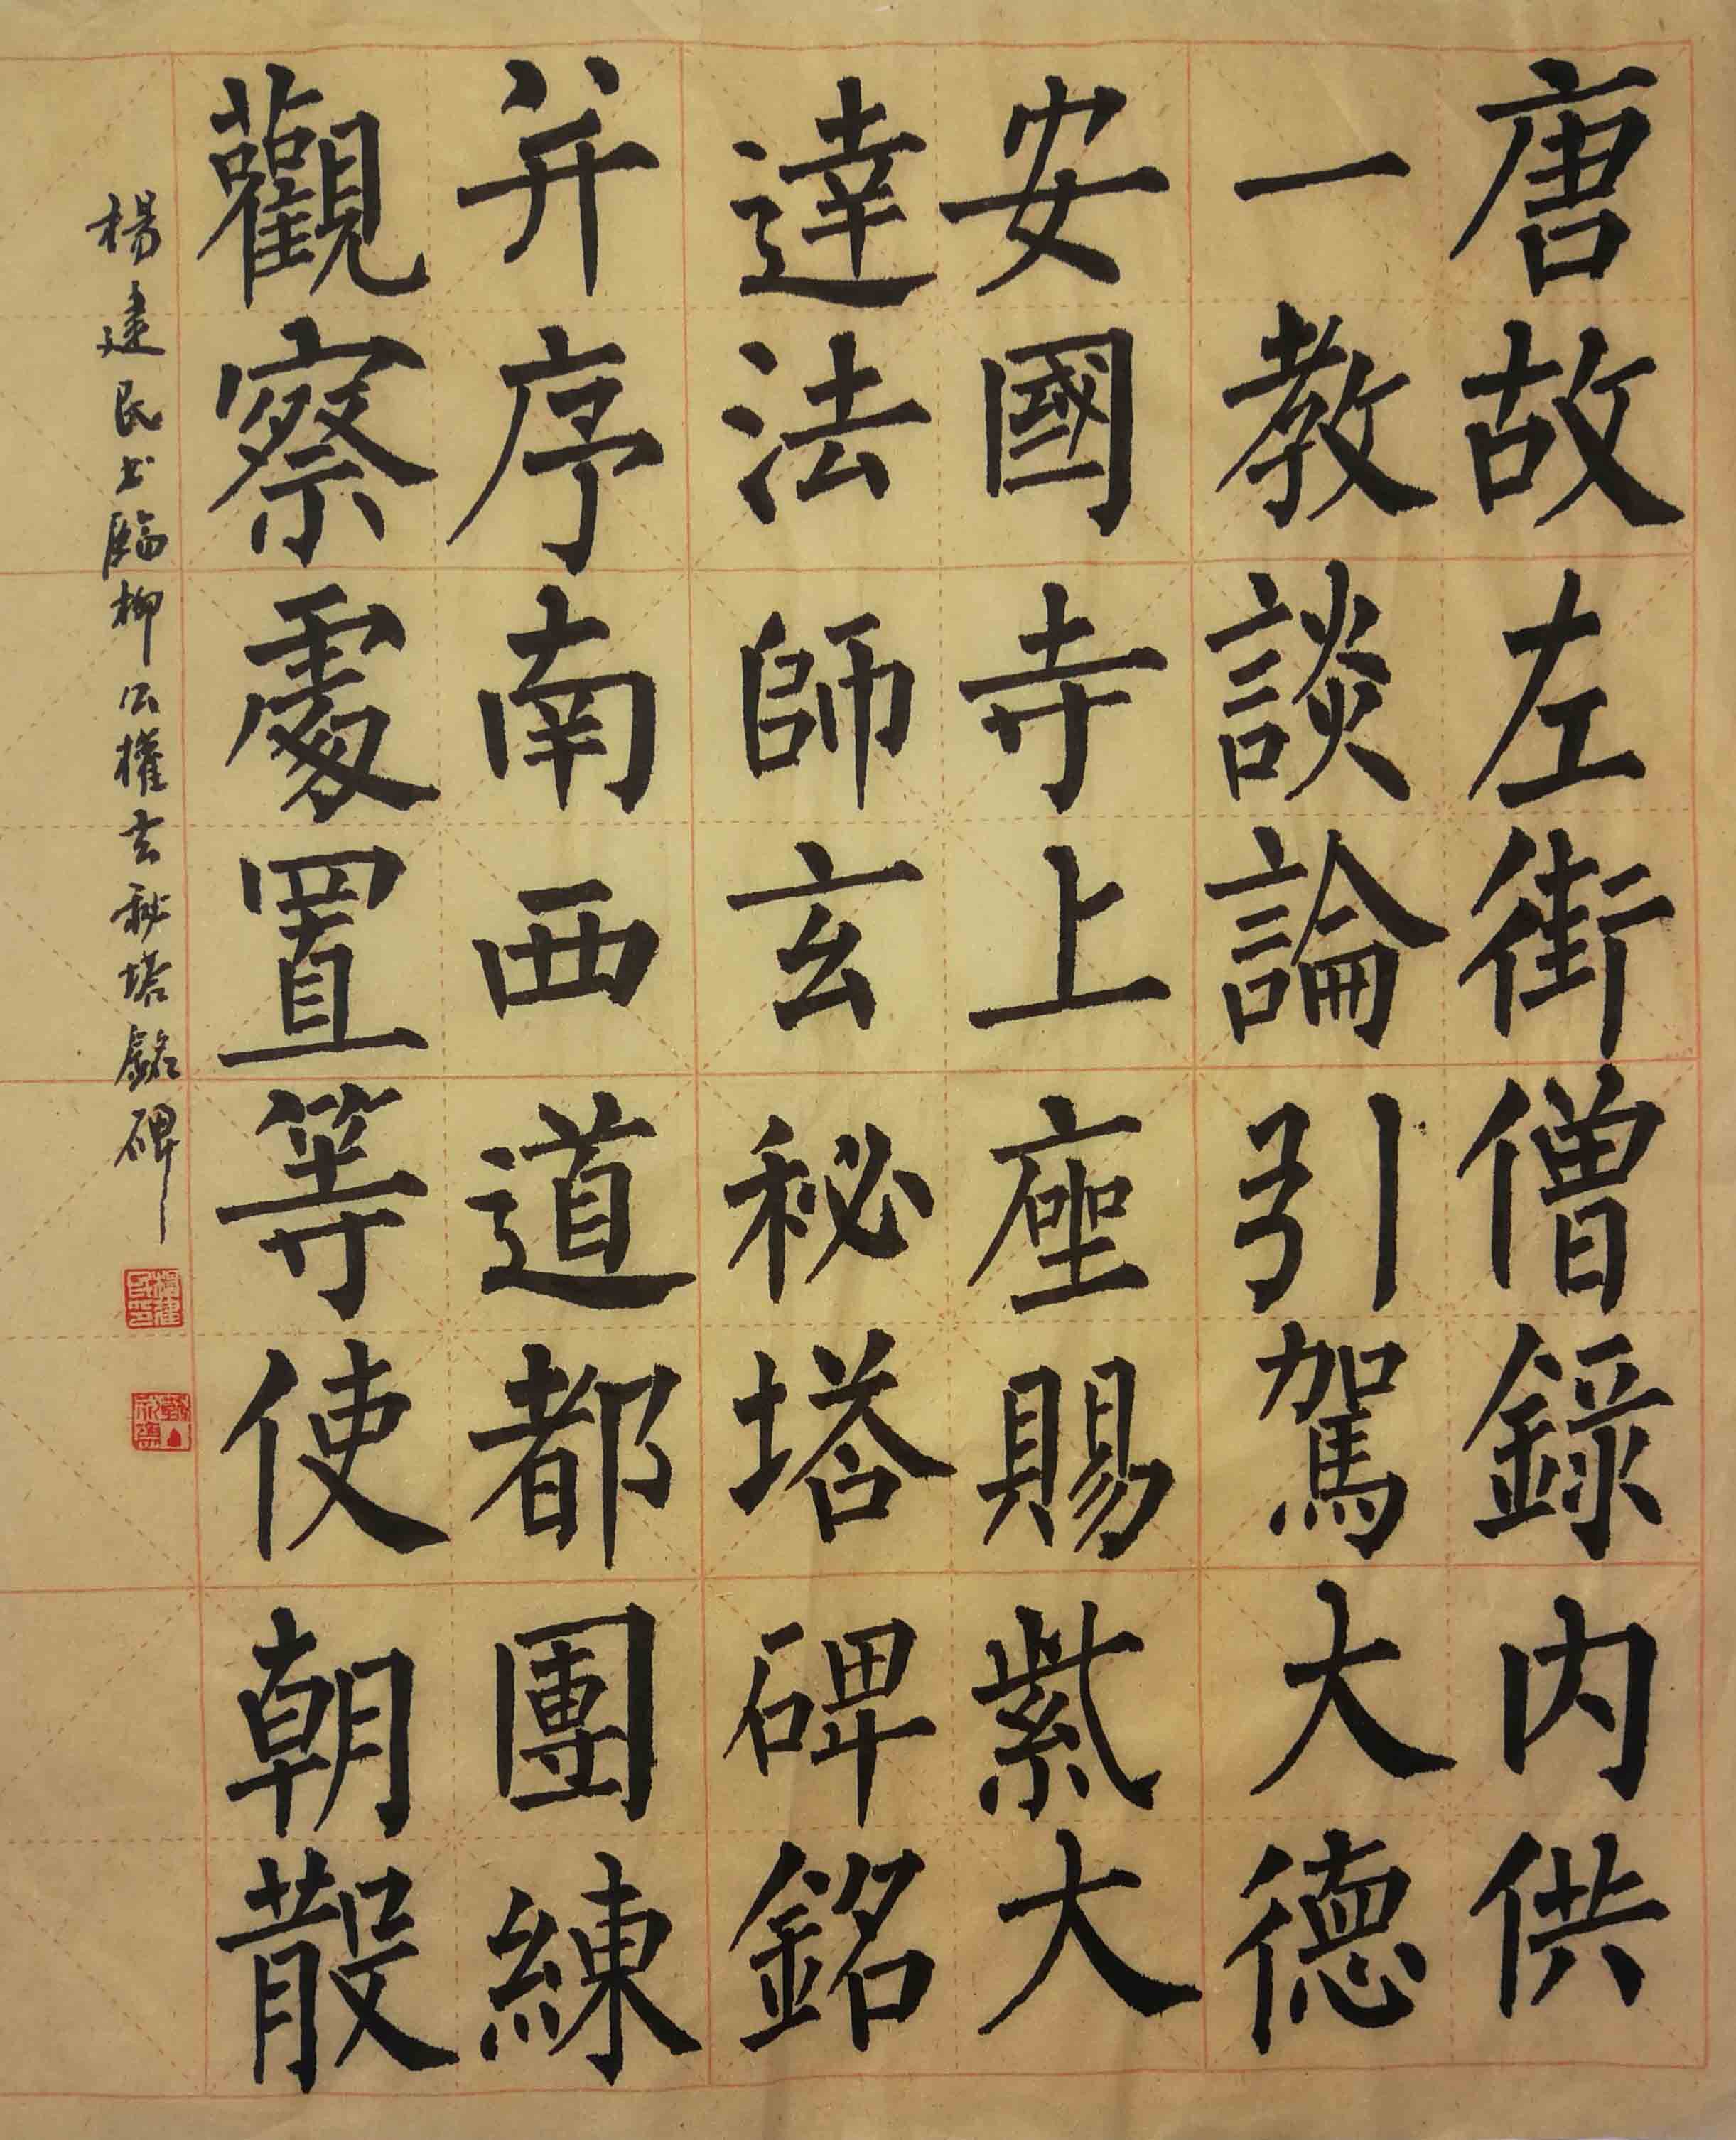 唐故左街僧錄内供
一教談論引駕大德
安國寺上座賜紫大
達法師玄秘塔碑銘
并序南西道都團練
觀察處置等使朝散
楊建民书臨柳公權玄秘塔銘碑